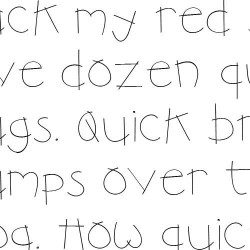 ck my red
ve dozen qu
ags. Quick br
mps over t
og. How quic